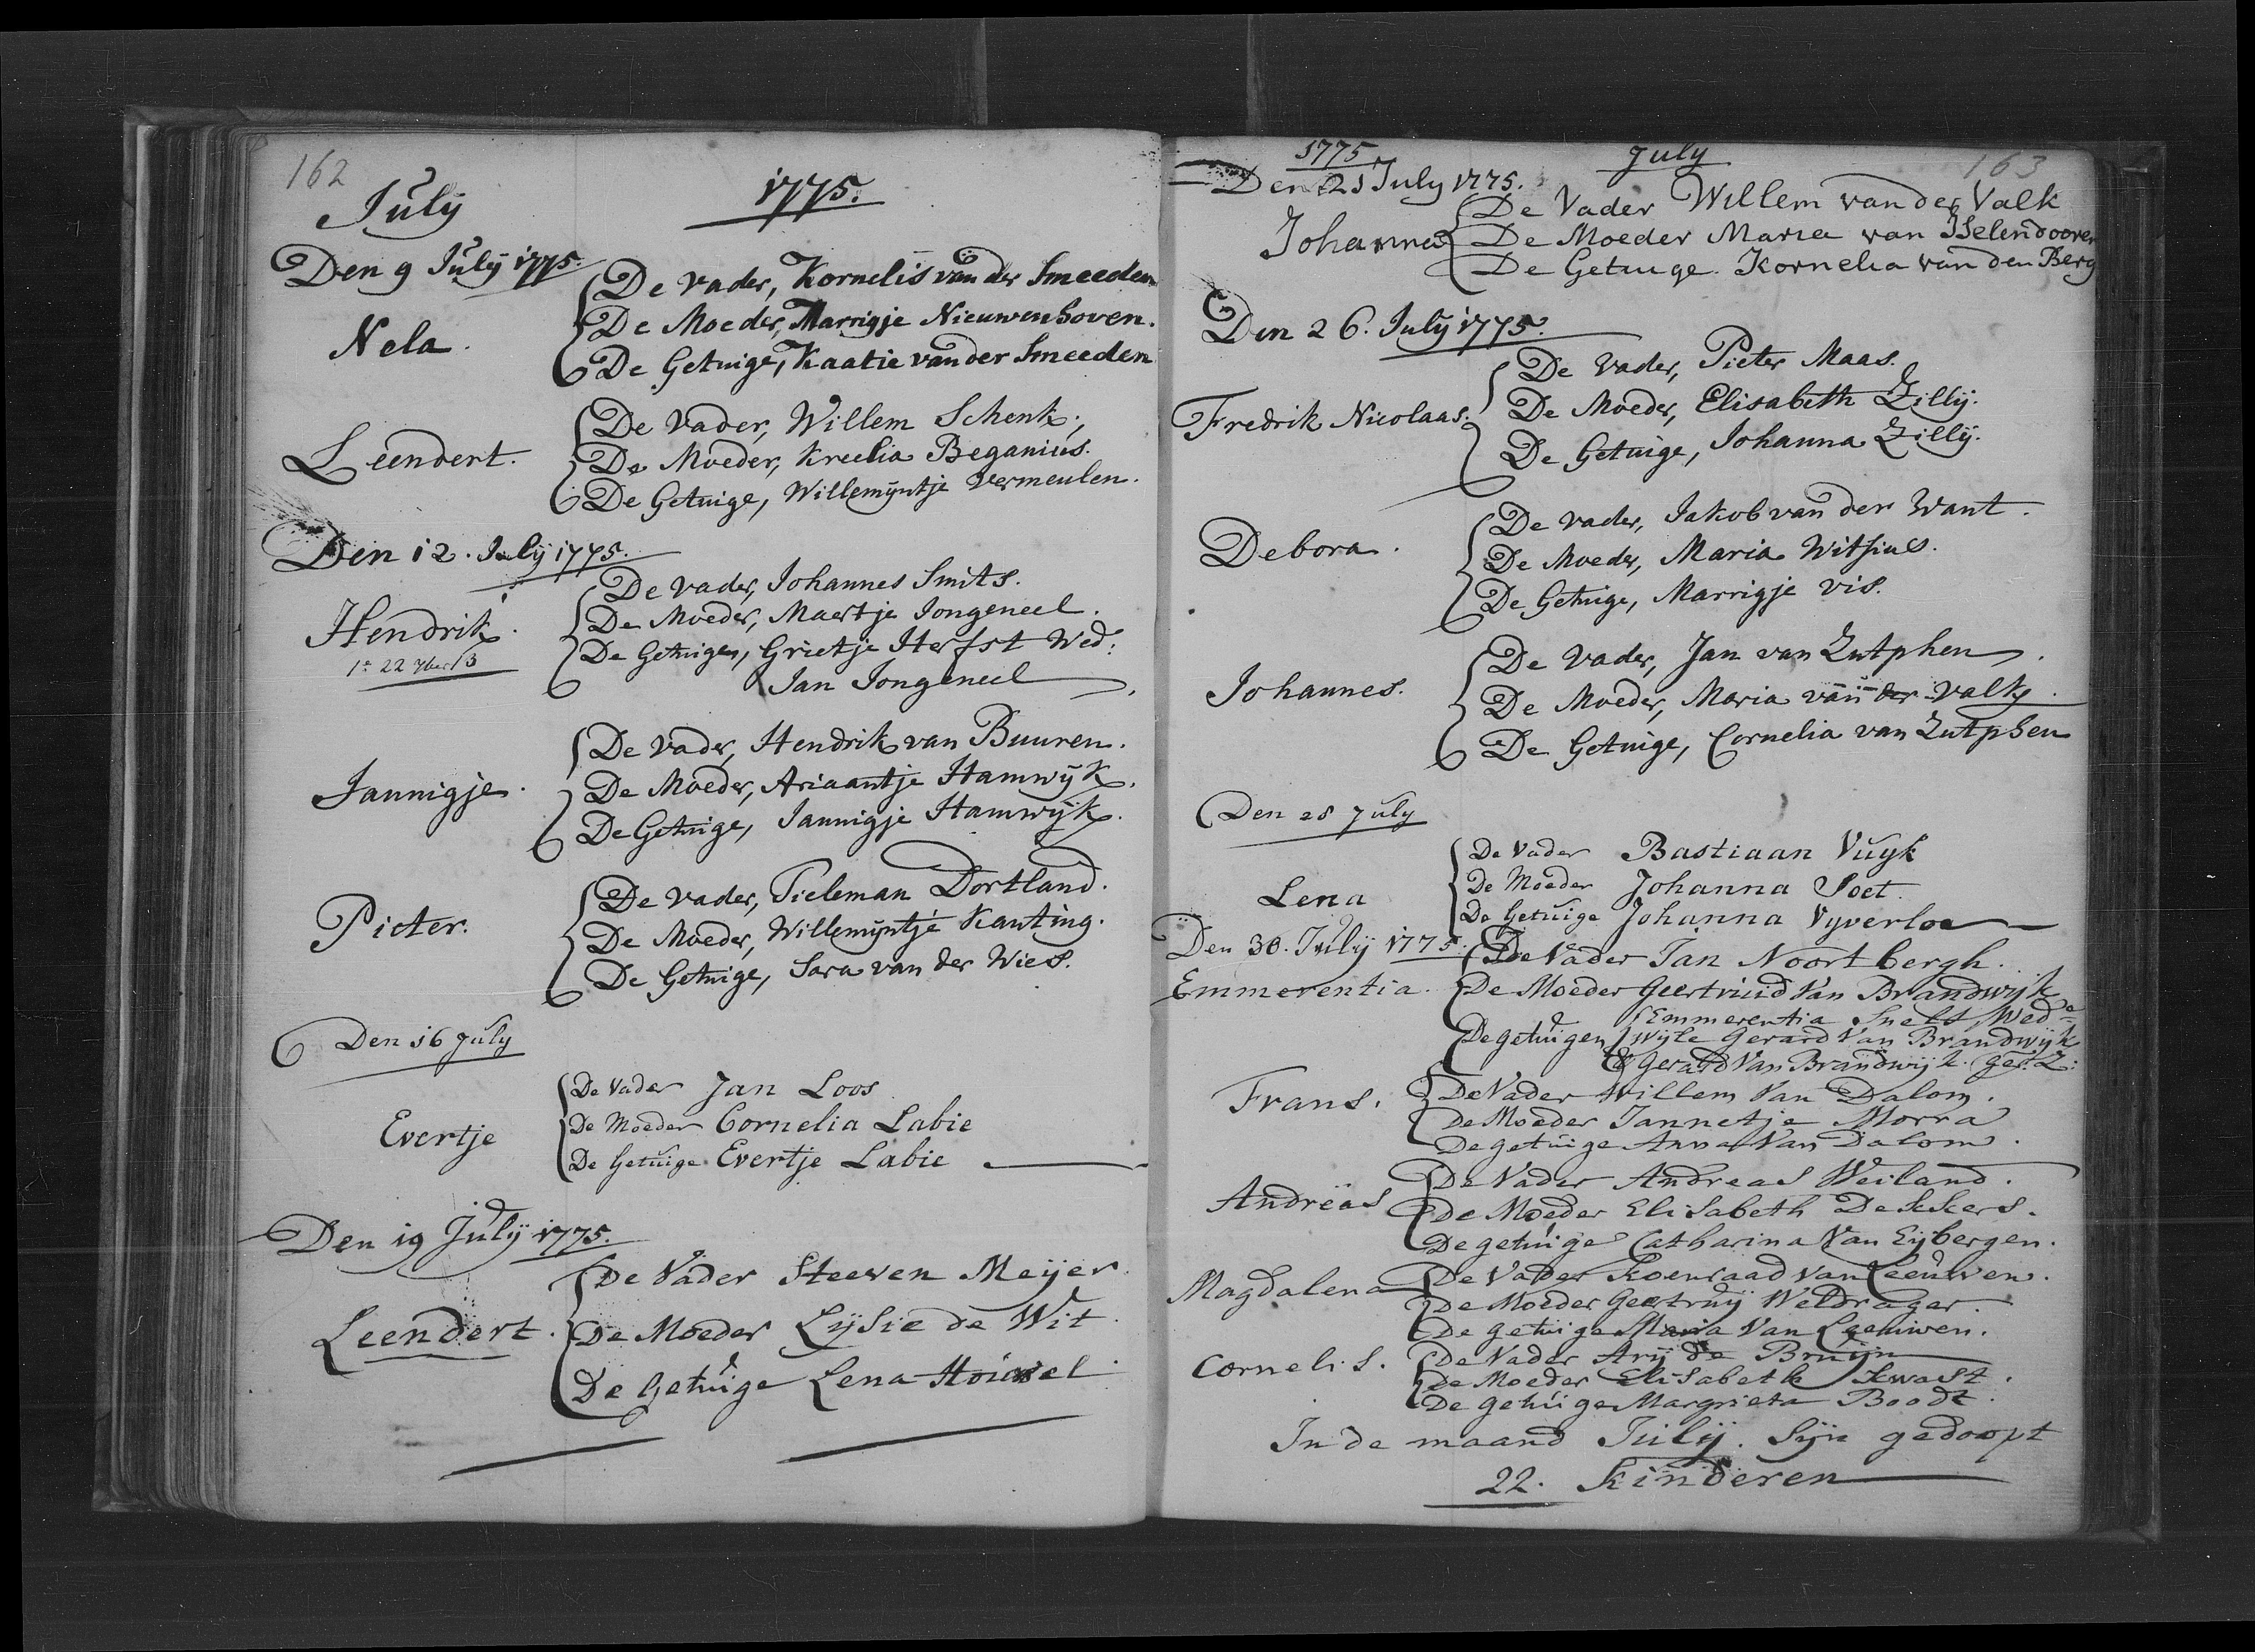 162
July 1775.
Den 9 July 1775.
Nela.
De vader, Kornelis van der Smeeden
De Moeder, Marrigje Nieuwenhoven.
De Getuige, Kaatie van der Smeeden
Leendert.
De Vader, Willem Schenk,
De Moeder, Kreelia Beganius.
De Getuige, Willemyntje Vermeulen.
Den 12. July 1775.
Hendrik.
De vader, Johannes Smits.
De Moeder, Maertje Jongeneel.
De Getuigen, Grietje Herfst Wed:
Jan Jongeneel
Jannigje.
De vader, Hendrik van Buuren.
De Moeder, Ariaantje Hamwijk.
De Getuige, Jannigje Hamwijk.
Pieter.
De vader, Tieleman Dortland.
De Moeder, Willemyntje Kanting.
De Getuige, Sara van der Wies.
Den 16 July
Evertje
De Vader Jan Loos
De Moeder Cornelia Labie
De Getuige Evertje Labie
Den 19 July 1775.
Leendert.
De Vader Steeven Meijer
De Moeder Lijsie de Wit
De Getuige Lena
1775 July 163
Den 21 July 1775.
Johanna
De Vader Willem van der Valk
De Moeder Maria van Iselendooren
De Getuige. Kornelia van den Berg
Den 26. July 1775.
Fredrik Nicolaas.
De Vader, Pieter Maas.
De Moeder, Elisabeth Zilly.
De Getuige, Johanna Zilly.
Debora.
De vader, Jakob van der Want.
De Moeder, Maria Witsius.
De Getuige, Marrigje vis.
Johannes.
De Vader, Jan van Zutphen.
De Moeder, Maria van der Valk.
De Getuige, Cornelia van Zutphen
Den 28 July
Lena
De Vader Bastiaan Vuyk
De Moeder Johanna Poet
De Getuige Johanna Vyverloe
Den 30. July 1775.
Emmerentia.
De Vader Jan Noortbergh.
De Moeder Geertruid Van Brandwijk
De getuigen Emmerentia Snels, Wede
Wijle Gerard Van Brandwijk
& Gerard Van Brandwijk. Ger: Z:
Frans.
De Vader Willem Van Dalom.
De Moeder Jannetje Morra
De getuige Anna Van Dalom.
Andreas
De Vader Andreas Weiland.
De Moeder Elisabeth Dekkers.
De getuige Catharina Van Eijbergen.
Magdalena
De Vader Koenraad van Leeuwen.
De Moeder Geertruij Weldrager.
De getuige Maria Van Leeuwen.
Cornelis.
De Vader Arij de Bruijn
De Moeder Elisabeth Kwast.
De getuige Margrieta Boodt.
In de maand July. Sijn gedoopt
22. Kinderen